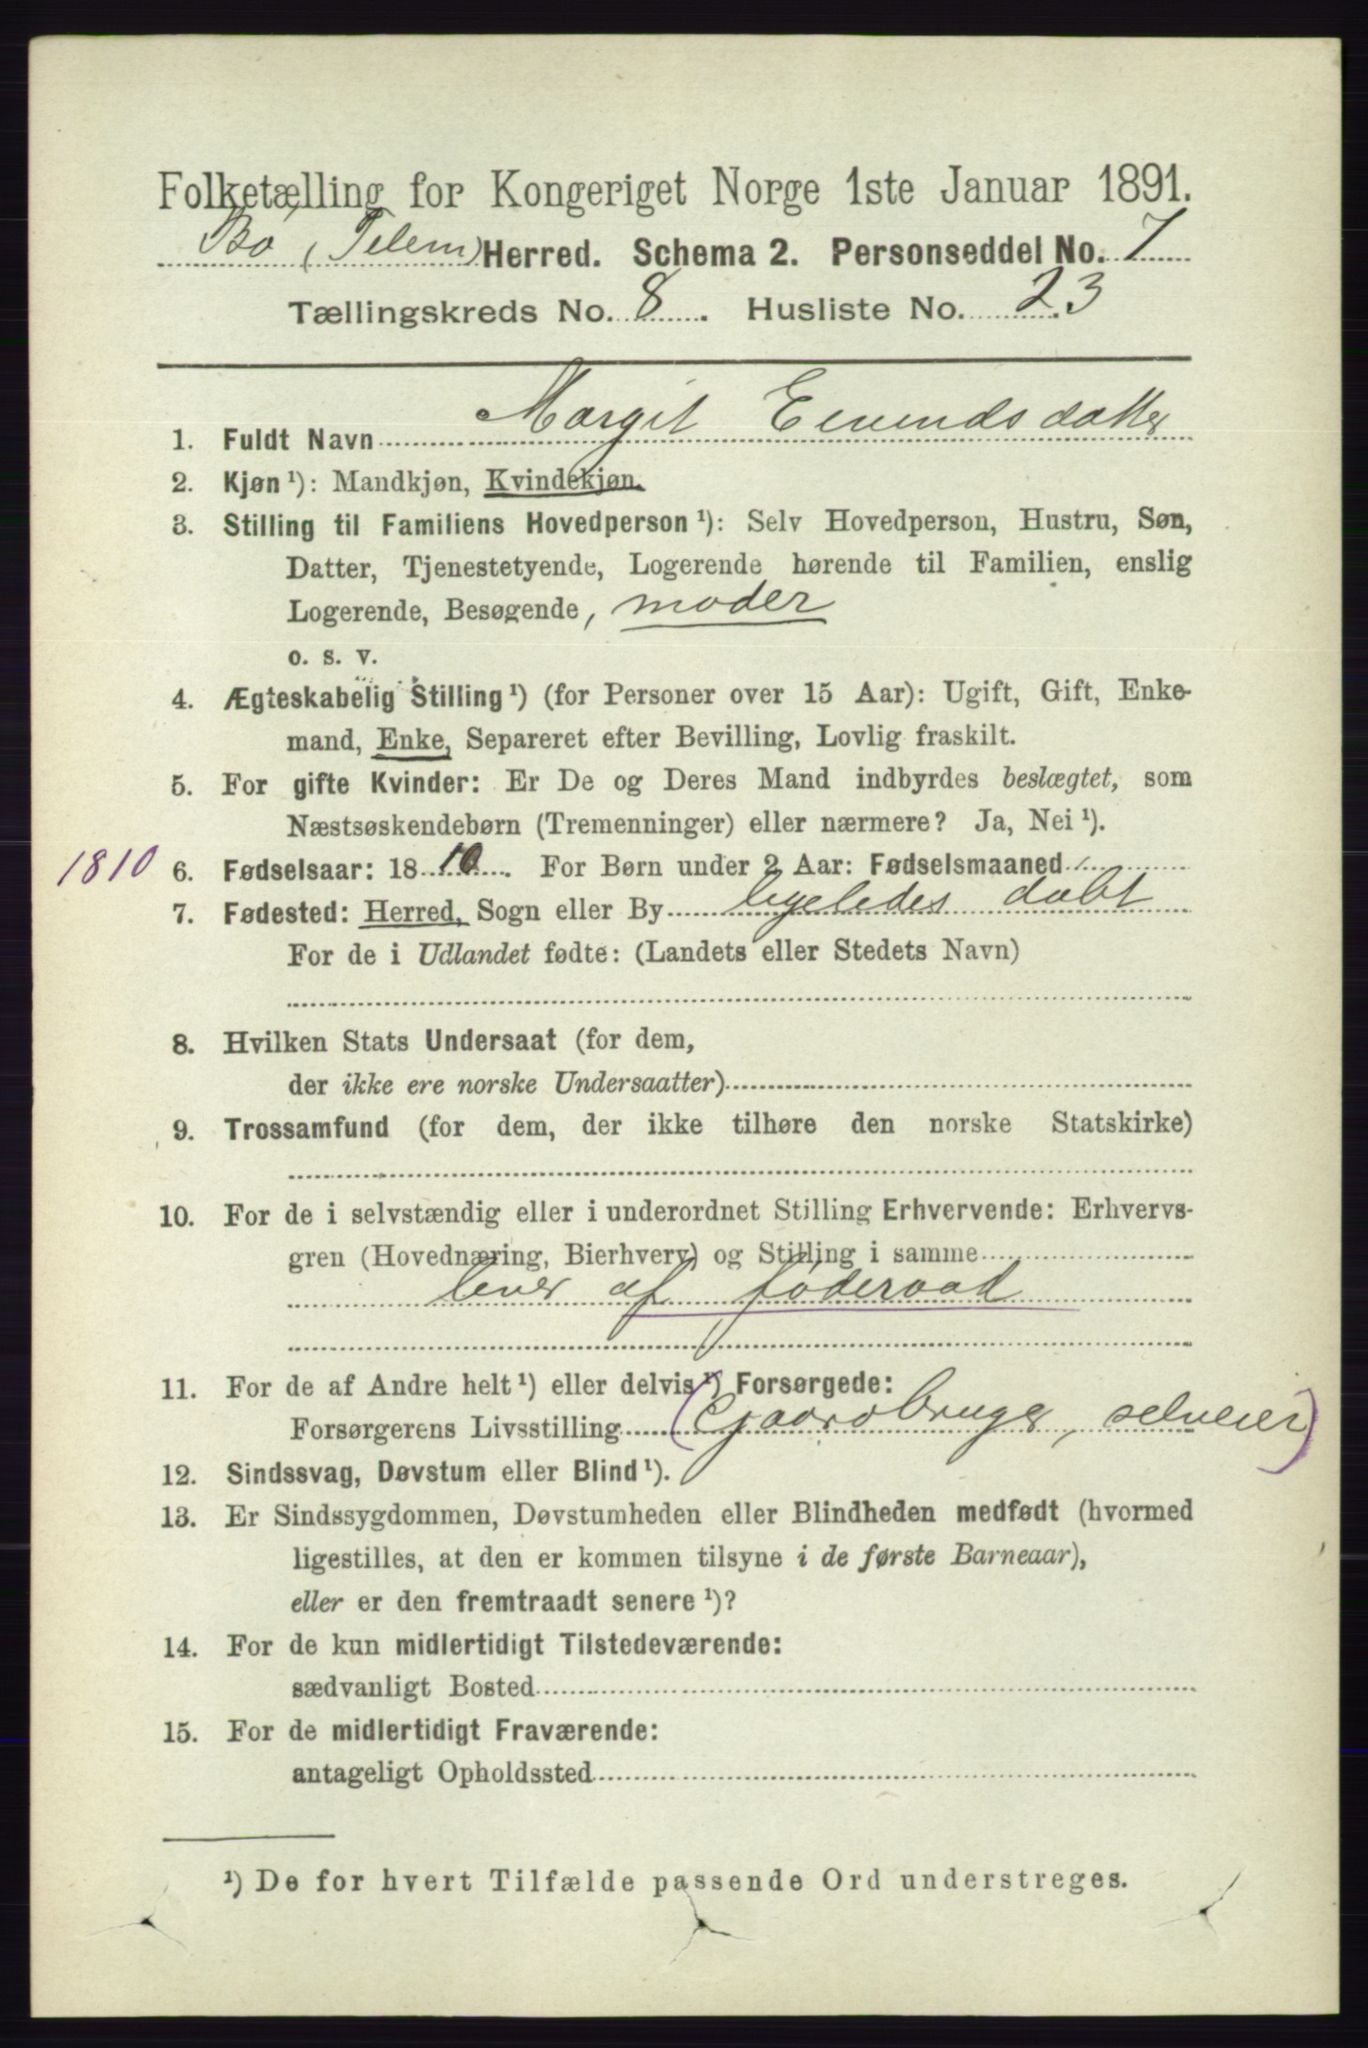 Folketælling for Kongeriget Norge 1ste Januar 1891.
Bø (Telem) Herred. Schema 2. Personseddel No. 7
Tællingskreds No. 8. Husliste No. 23
1. Fuldt Navn Margit Eivindsdatter
2. Kjøn ¹): Mandkjøn, Kvindekjøn.
3. Stilling til Familiens Hovedperson ¹): Selv Hovedperson, Hustru, Søn,
Datter, Tjenestetyende, Logerende hørende til Familien, enslig
Logerende, Besøgende, moder
o. s. v.
4. Ægteskabelig Stilling ¹) (for Personer over 15 Aar): Ugift, Gift, Enke-
mand, Enke, Separeret efter Bevilling, Lovlig fraskilt.
5. For gifte Kvinder: Er De og Deres Mand indbyrdes beslægtet, som
Næstsøskendebørn (Tremenninger) eller nærmere? Ja, Nei ¹).
1810 6. Fødselsaar: 18 10. For Børn under 2 Aar: Fødselsmaaned
7. Fødested: Herred, Sogn eller By ligeledes døbt
For de i Udlandet fødte: (Landets eller Stedets Navn)
8. Hvilken Stats Undersaat (for dem,
der ikke ere norske Undersaatter)
9. Trossamfund (for dem, der ikke tilhøre den norske Statskirke)
10. For de i selvstændig eller i underordnet Stilling Erhvervende: Erhvervs-
gren (Hovednæring, Bierhverv) og Stilling i samme
lever af föderaad
11. For de af Andre helt ¹) eller delvis ¹) Forsørgede:
Forsørgerens Livsstilling (Gaardbruger, selveier)
12. Sindssvag, Døvstum eller Blind ¹).
13. Er Sindssygdommen, Døvstumheden eller Blindheden medfødt (hvormed
ligestilles, at den er kommen tilsyne i de første Barneaar),
eller er den fremtraadt senere ¹)?
14. For de kun midlertidigt Tilstedeværende:
sædvanligt Bosted
15. For de midlertidigt Fraværende:
antageligt Opholdssted
¹) De for hvert Tilfælde passende Ord understreges.